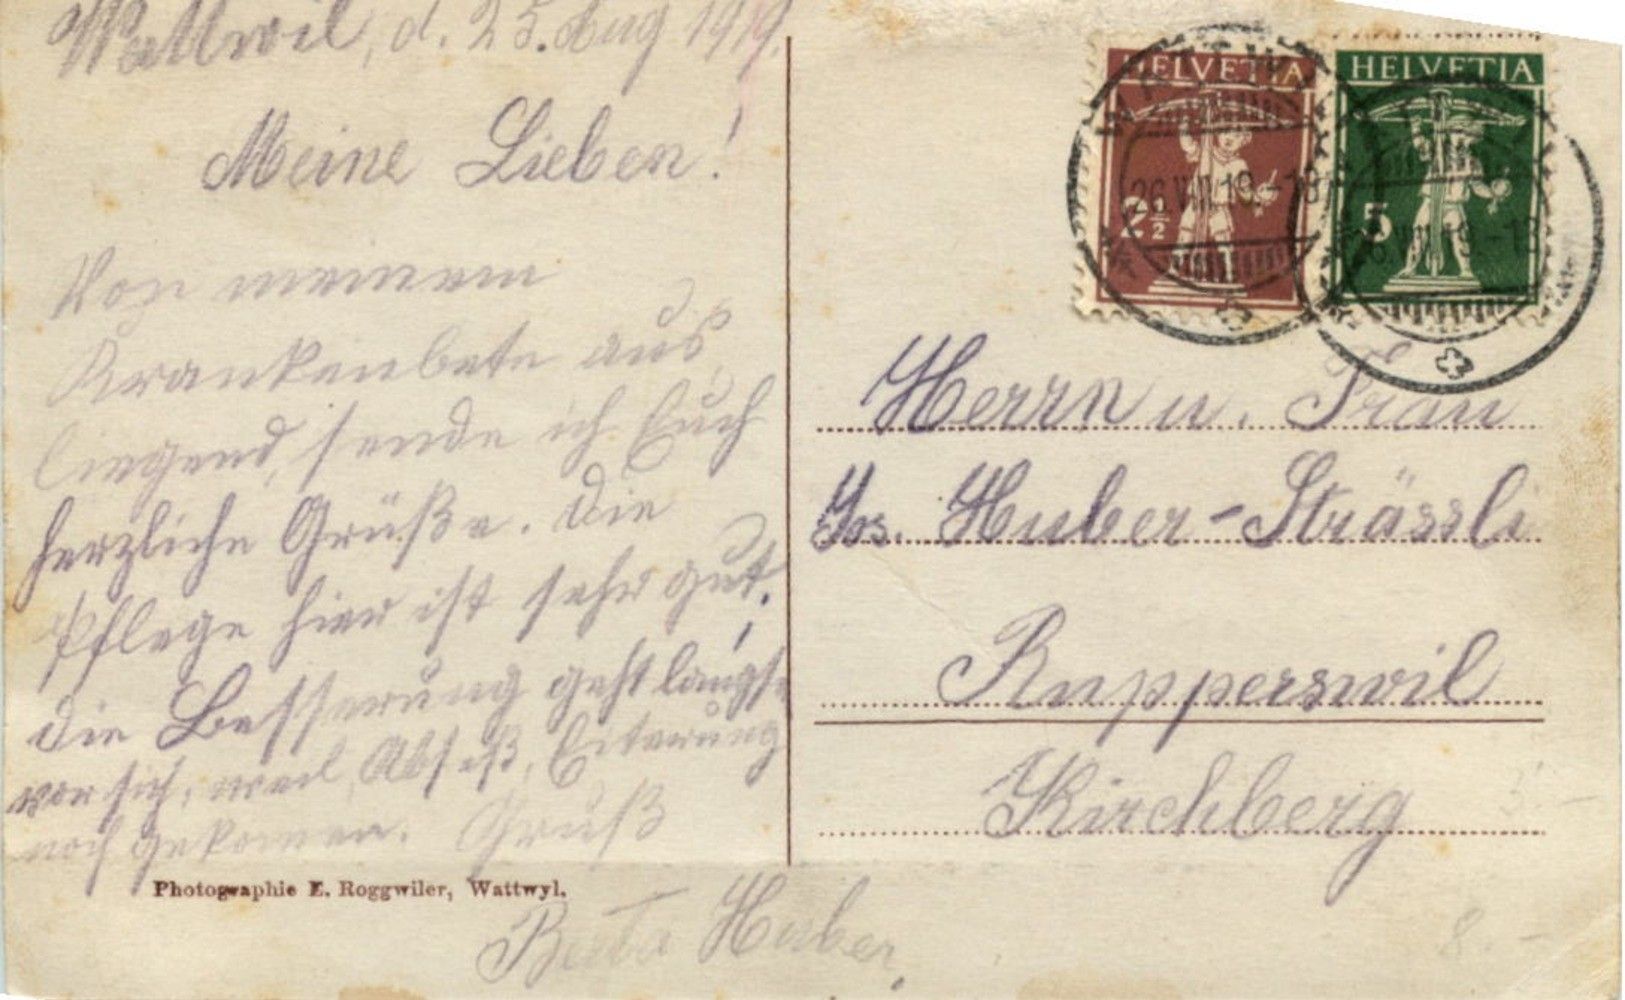 Wattwil, d. 25. Aug 1919.
Meine Lieben!
Von meinem
Krankenbete aus
liegend, sende ich Euch
herzliche Grüße. Die
Pflege hier ist sehr gut,
die Besserung geht langs.
vor sich, weil Abseß, Eiterung
noch gekomen. Gruß
Berta Huber.
Photographie E. Roggwiler, Wattwyl.
HELVETIA
2½
HELVETIA
5
26.VIII.19.-18
Herrn u. Frau
Jos. Huber-Strässli
Rupperswil
Kirchberg